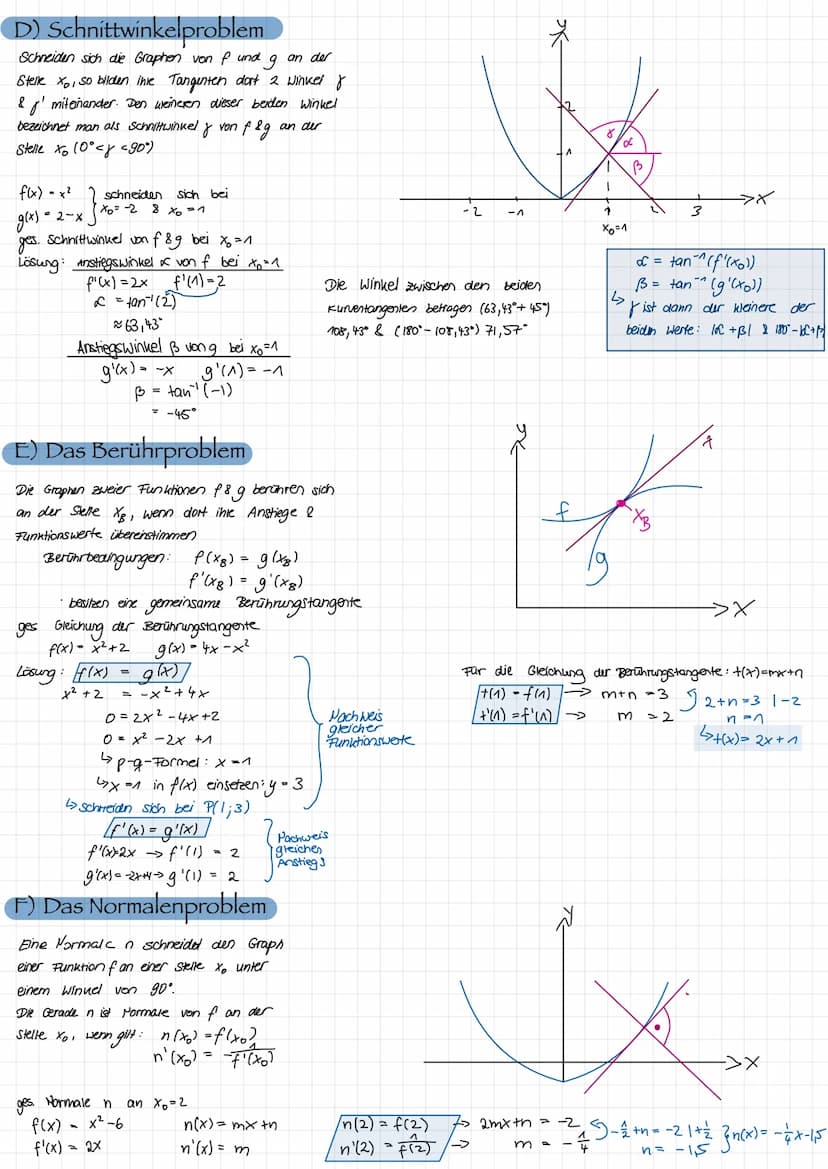 D) Schnittwinkelproblem
Schneiden sich die Graphen von f und g an der
Stelle x₀, so bilden ihre Tangenten dort 2 Winkel γ
& γ' miteinander. Den kleineren dieser beiden Winkel
bezeichnet man als Schnittwinkel γ von f & g an der
Stelle x₀ (0° < γ < 90°)
f(x) = x² } schneiden sich bei
g(x) = 2-x } x₀ = -2 & x₀ = 1
ges. Schnittwinkel von f & g bei x₀ = 1
Lösung: Anstiegswinkel α von f bei x₀ = 1
f'(x) = 2x f'(1) = 2
α = tan⁻¹(2)
≈ 63,43°
Anstiegswinkel β von g bei x₀ = 1
g'(x) = -x g'(1) = -1
β = tan⁻¹(-1)
= -45°
y
2
1
γ
α
β
-2 -1 1 2 3 x
x₀=1
Die Winkel zwischen den beiden
Kurventangenten betragen (63,43° + 45°)
108,43° & (180° - 108,43°) 71,57°
α = tan⁻¹(f'(x₀))
β = tan⁻¹(g'(x₀))
↳ γ ist dann der kleinere der
beiden Werte: |α + β| & 180° - |α + β|
E) Das Berührproblem
Die Graphen zweier Funktionen f & g berühren sich
an der Stelle x_B, wenn dort ihre Anstiege &
Funktionswerte übereinstimmen
Berührbedingungen: f(x_B) = g(x_B)
f'(x_B) = g'(x_B)
· besitzen eine gemeinsame Berührungstangente
ges Gleichung der Berührungstangente
f(x) = x² + 2 g(x) = 4x - x²
Lösung: f(x) = g(x)
x² + 2 = -x² + 4x
0 = 2x² - 4x + 2
0 = x² - 2x + 1
↳ p-q-Formel: x = 1
↳ x = 1 in f(x) einsetzen: y = 3
↳ schneiden sich bei P(1;3)
Nachweis
gleicher
Funktionswerte
f'(x) = g'(x)
f'(x)=2x → f'(1) = 2
g'(x) = -2x+4 → g'(1) = 2
Nachweis
gleichen
Anstiegs
y
f
g
x_B
x
Für die Gleichung der Berührungstangente: t(x)=mx+n
t(1) = f(1) → m+n = 3
t'(1) = f'(1) → m = 2
2+n = 3 |-2
n = 1
↳ t(x) = 2x + 1
F) Das Normalenproblem
Eine Normale n schneidet den Graph
einer Funktion f an einer Stelle x₀ unter
einem Winkel von 90°.
Die Gerade n ist Normale von f an der
Stelle x₀, wenn gilt: n(x₀) = f(x₀)
n'(x₀) = -1/f'(x₀)
y
x
ges. Normale n an x₀=2
f(x) = x²-6 n(x) = mx+n
f'(x) = 2x n'(x) = m
n(2) = f(2) → 2mx+n = -2
n'(2) = 1/f(2) → m = -1/4
-1/2+n = -2 |+1/2
n = -1,5
n(x) = -1/4x-1,5